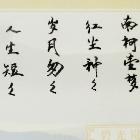 南柯堂梦
红尘神々
岁月匆々
人生短々